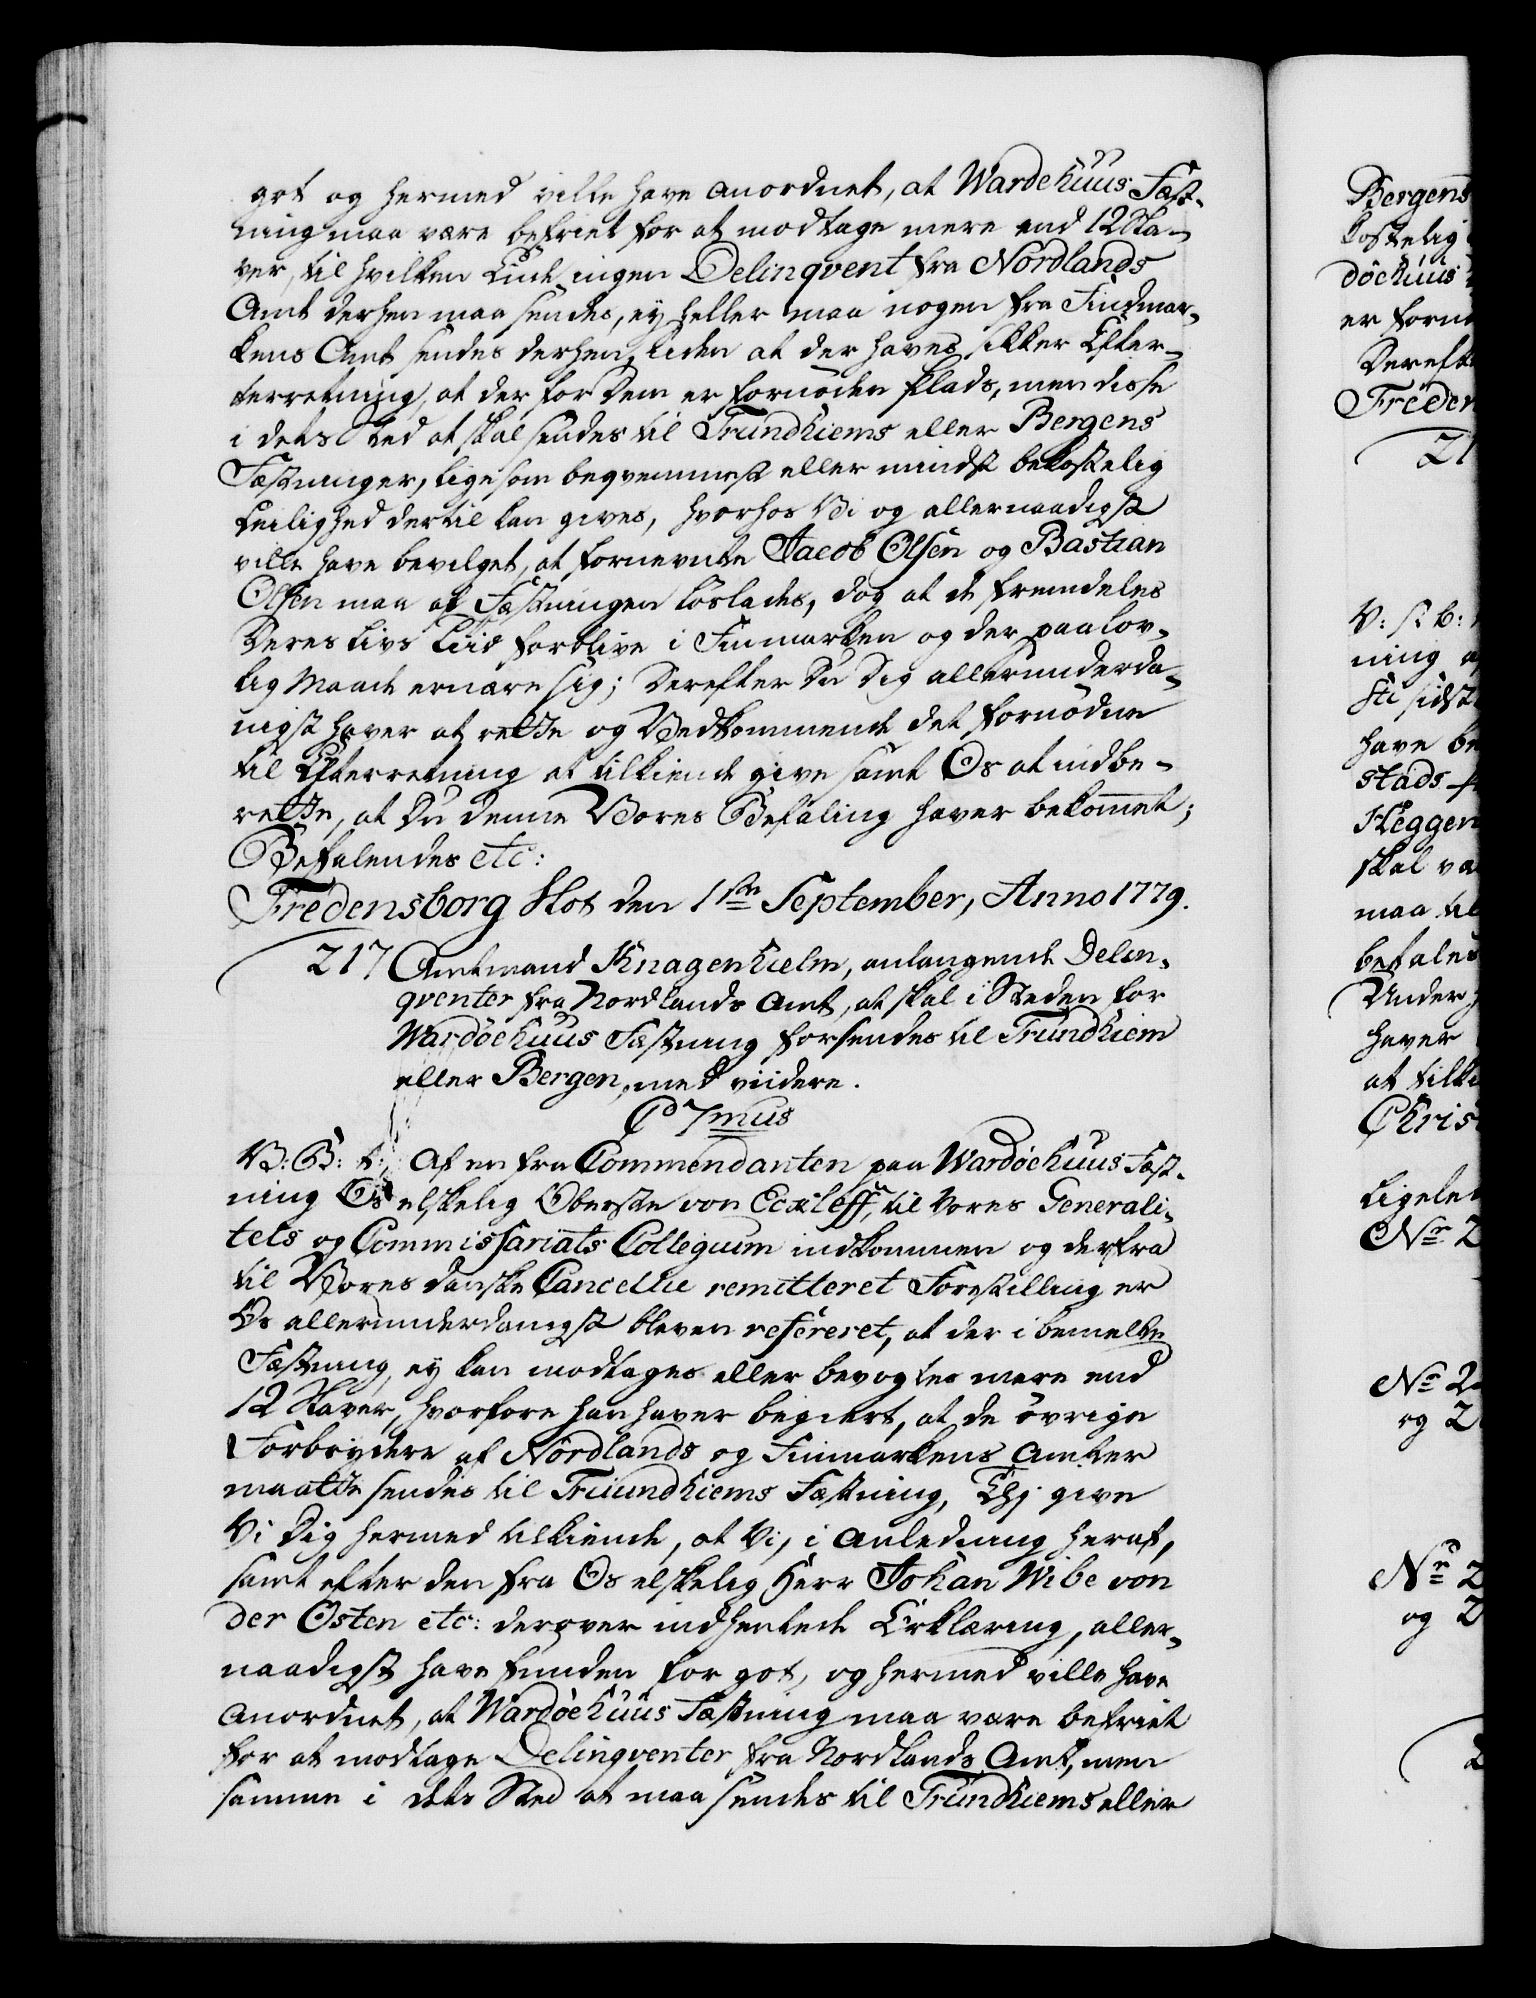 got og hermed ville have anordnet, at Wardehuus Fæst-
ning maa være befriet for at modtage mere end 12 Sla-
ver, til hvilken Ende ingen Delinqvent fra Nordlands
Amt derhen maa sendes, ey heller maa nogen fra Findmar-
kens Amt sendes derhen, uden at der haves sikker Efter-
terretning, at der for dem er fornøden Plads, men disse
i dets Sted at skal sendes til Trundhiems eller Bergens
Fæstninger, ligesom beqvemmest eller mindst bekostelig
Leilighed dertil kan gives, hvorhos Vi og allernaadigst
ville have bevilget, at fornevnte Jacob Olsen og Bastian
Olsen maa af Fæstningen løslades, dog at de fremdeles
Deres Livs Tiid forblive i Finmarken og der paa lov-
lig Maade ernære sig; Derefter Du Dig allerunderda-
nigst haver at rette og Vedkommende det fornødne
til Efterretning at tilkiende give samt Os at indbe-
rette, at Du denne Vores Befaling haver bekommet;
Befalendes etc:
Fredensborg Slot den 1ste September, Anno 1779.
217 Amtmand Knagenhielm, anlangende Delin-
qventer fra Nordlands Amt, at skal i Steden for
Wardøehuus Fæstning forsendes til Trundhiem
eller Bergen, med viidere.
C 7mus
V: G: t: Af en fra Commendanten paa Wardøehuus Fæst-
ning Os elskelig Oberste von Eckleff, til Vores Generali-
tets og Commissariats Collegium indkommen og derfra
til Vores danske Cancellie remitteret Forestilling er
Os allerunderdanigst bleven refereret, at der i bemelte
Fæstning, ey kan modtages eller bevogtes mere end
12 Slaver, hvorfore han haver begiert, at de øvrige
Forbrydere af Nordlands og Finmarkens Amter
maatte sendes til Truundhiems Fæstning, Thj give
Vi Dig hermed tilkiende, at Vi, i Anledning heraf,
samt efter den fra Os elskelig Herr Johan Wibe von
der Osten etc: derover indhentede Erklæring, aller-
naadigst have funden for got, og hermed ville have
anordnet, at Wardøehuus Fæstning maa være befriet
for at modtage Delinqventer fra Nordlands Amt, men
samme i dets Sted at maa sendes til Trundhiems eller
Bergens
kostelig
døehuus
er forn
Dereft
Freden
21
ning
sti sidst
have be
stads
Heggen
skal væ
maa til
befales
Under
haver
at tilki
Chris
Ligele
No 2
No 2
og 2
No 2
og 2
2